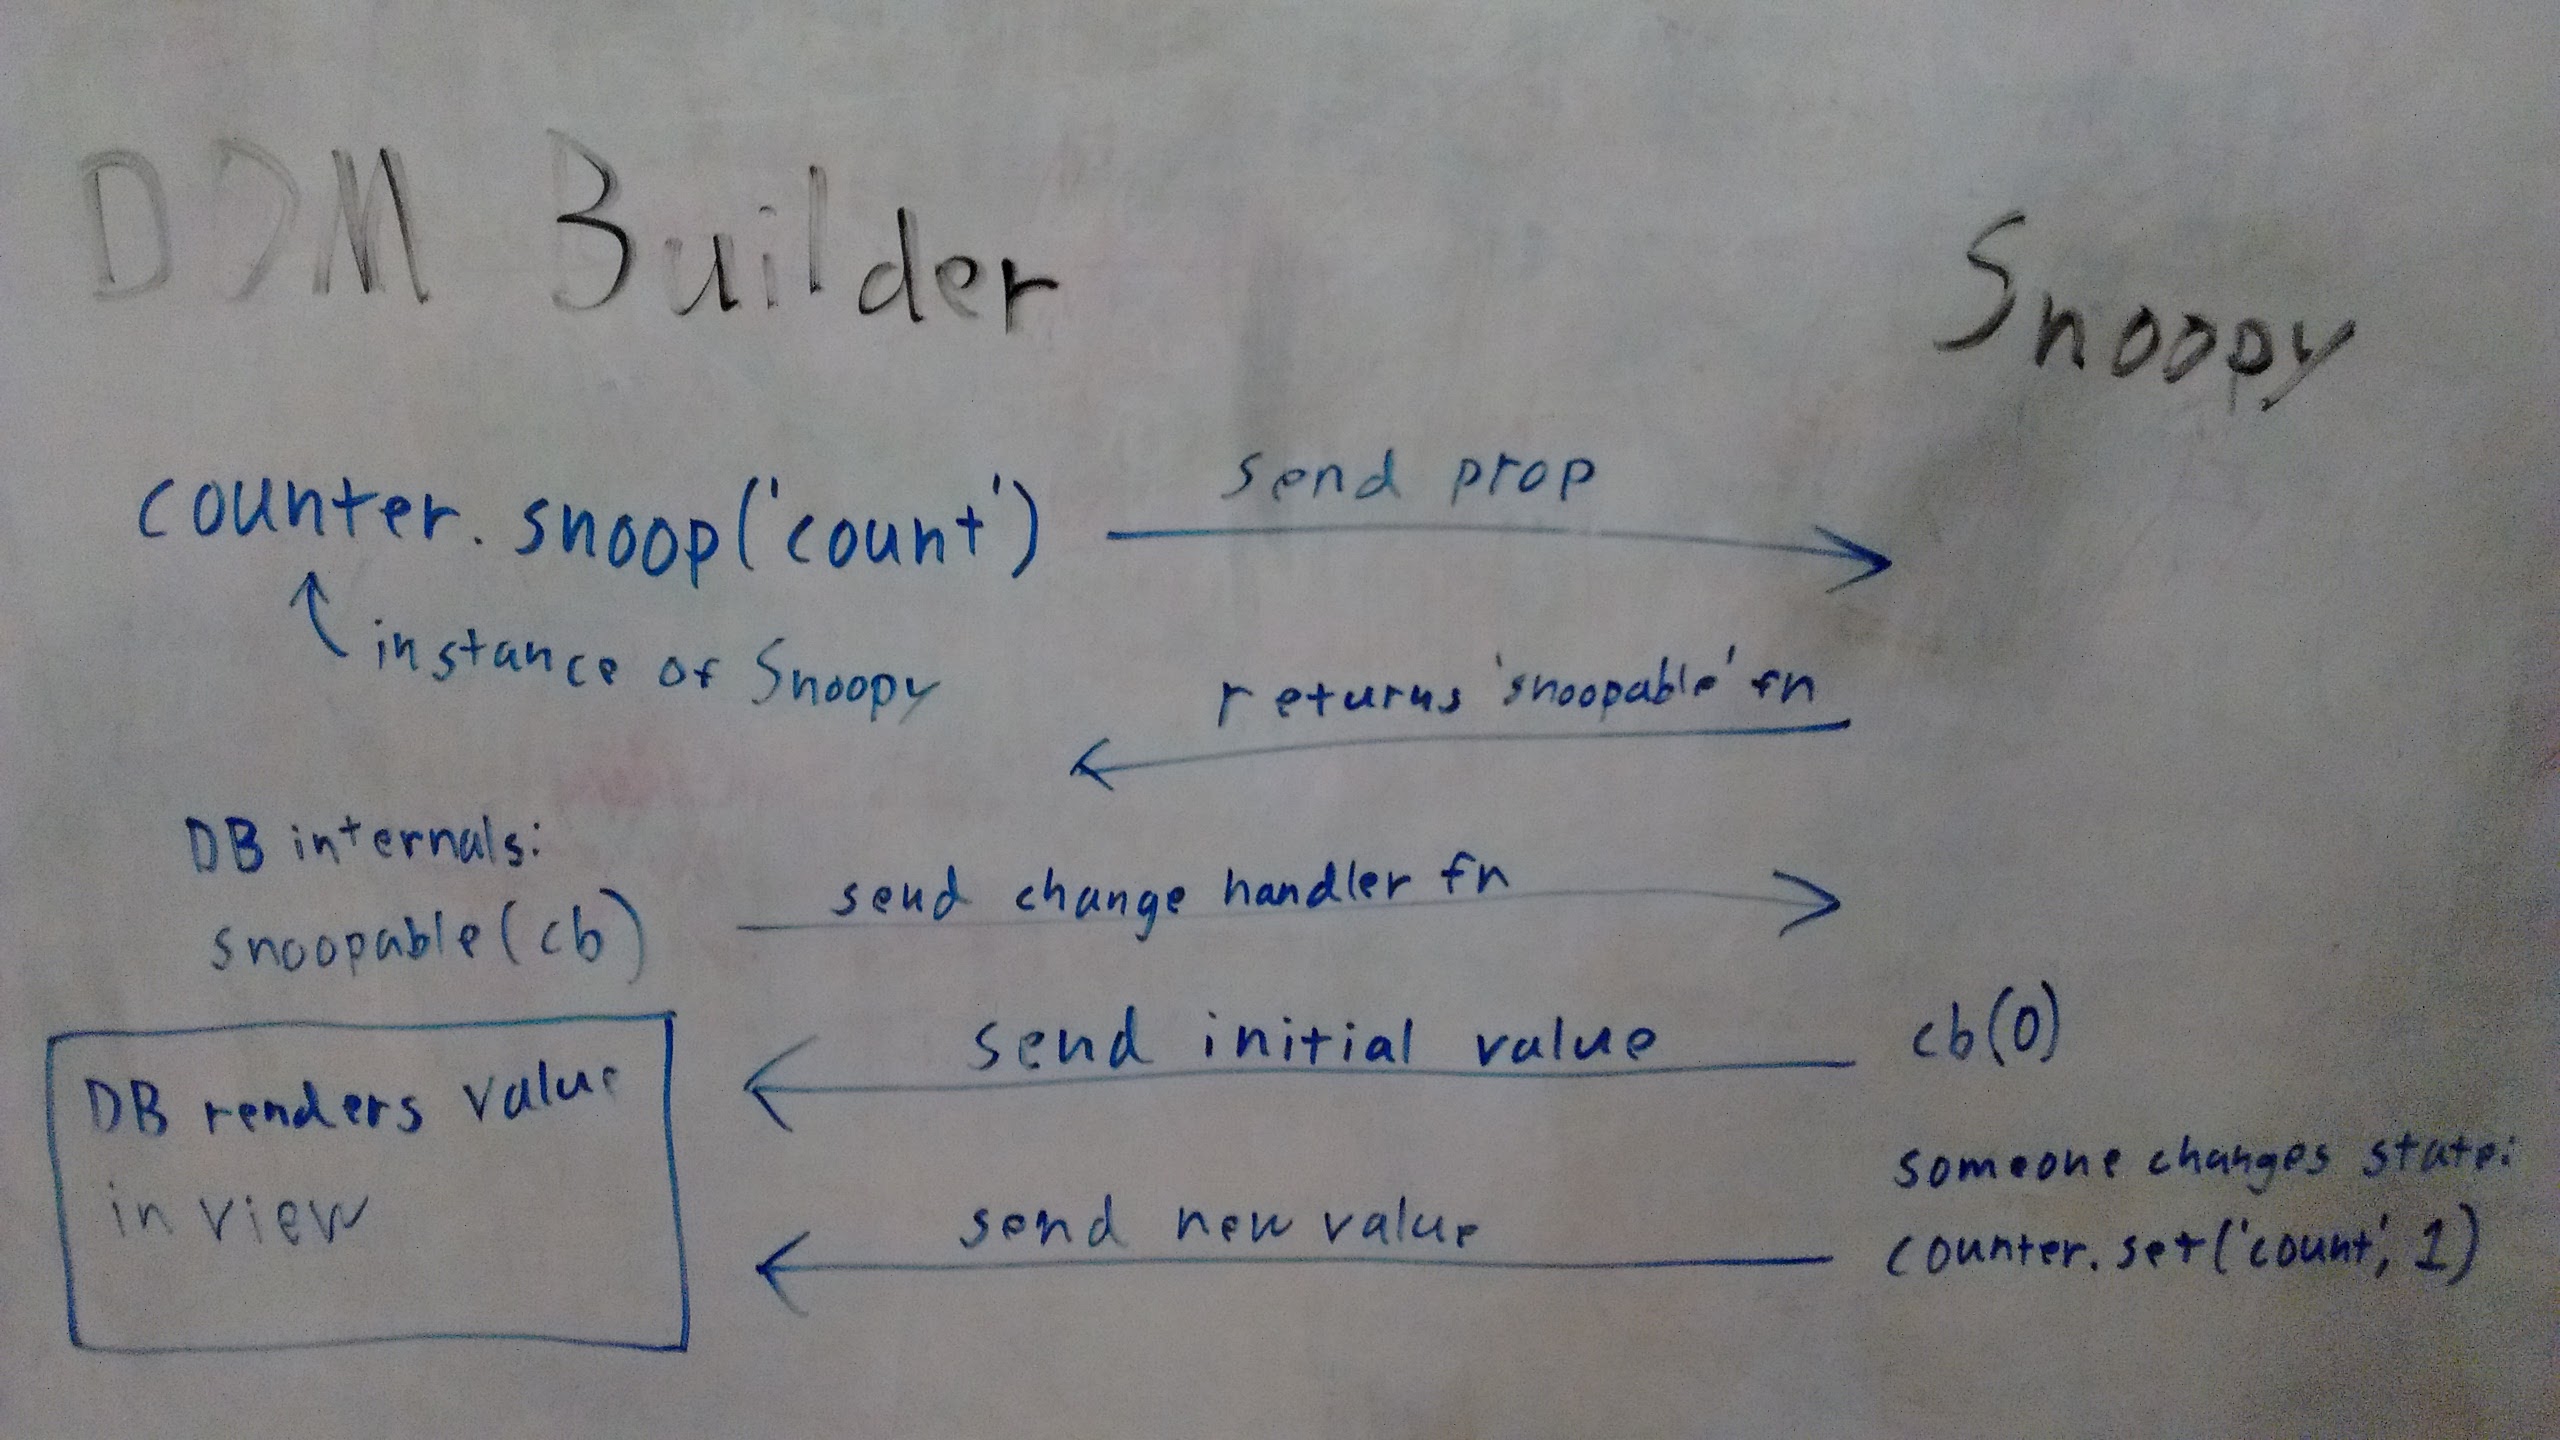 DOM Builder
Snoopy
counter.snoop('count')
send prop
instance of Snoopy
returns 'snoopable' fn
DB internals:
snoopable(cb)
send change handler fn
send initial value
cb(0)
DB renders value
in view
someone changes state:
send new value
counter.set('count', 1)